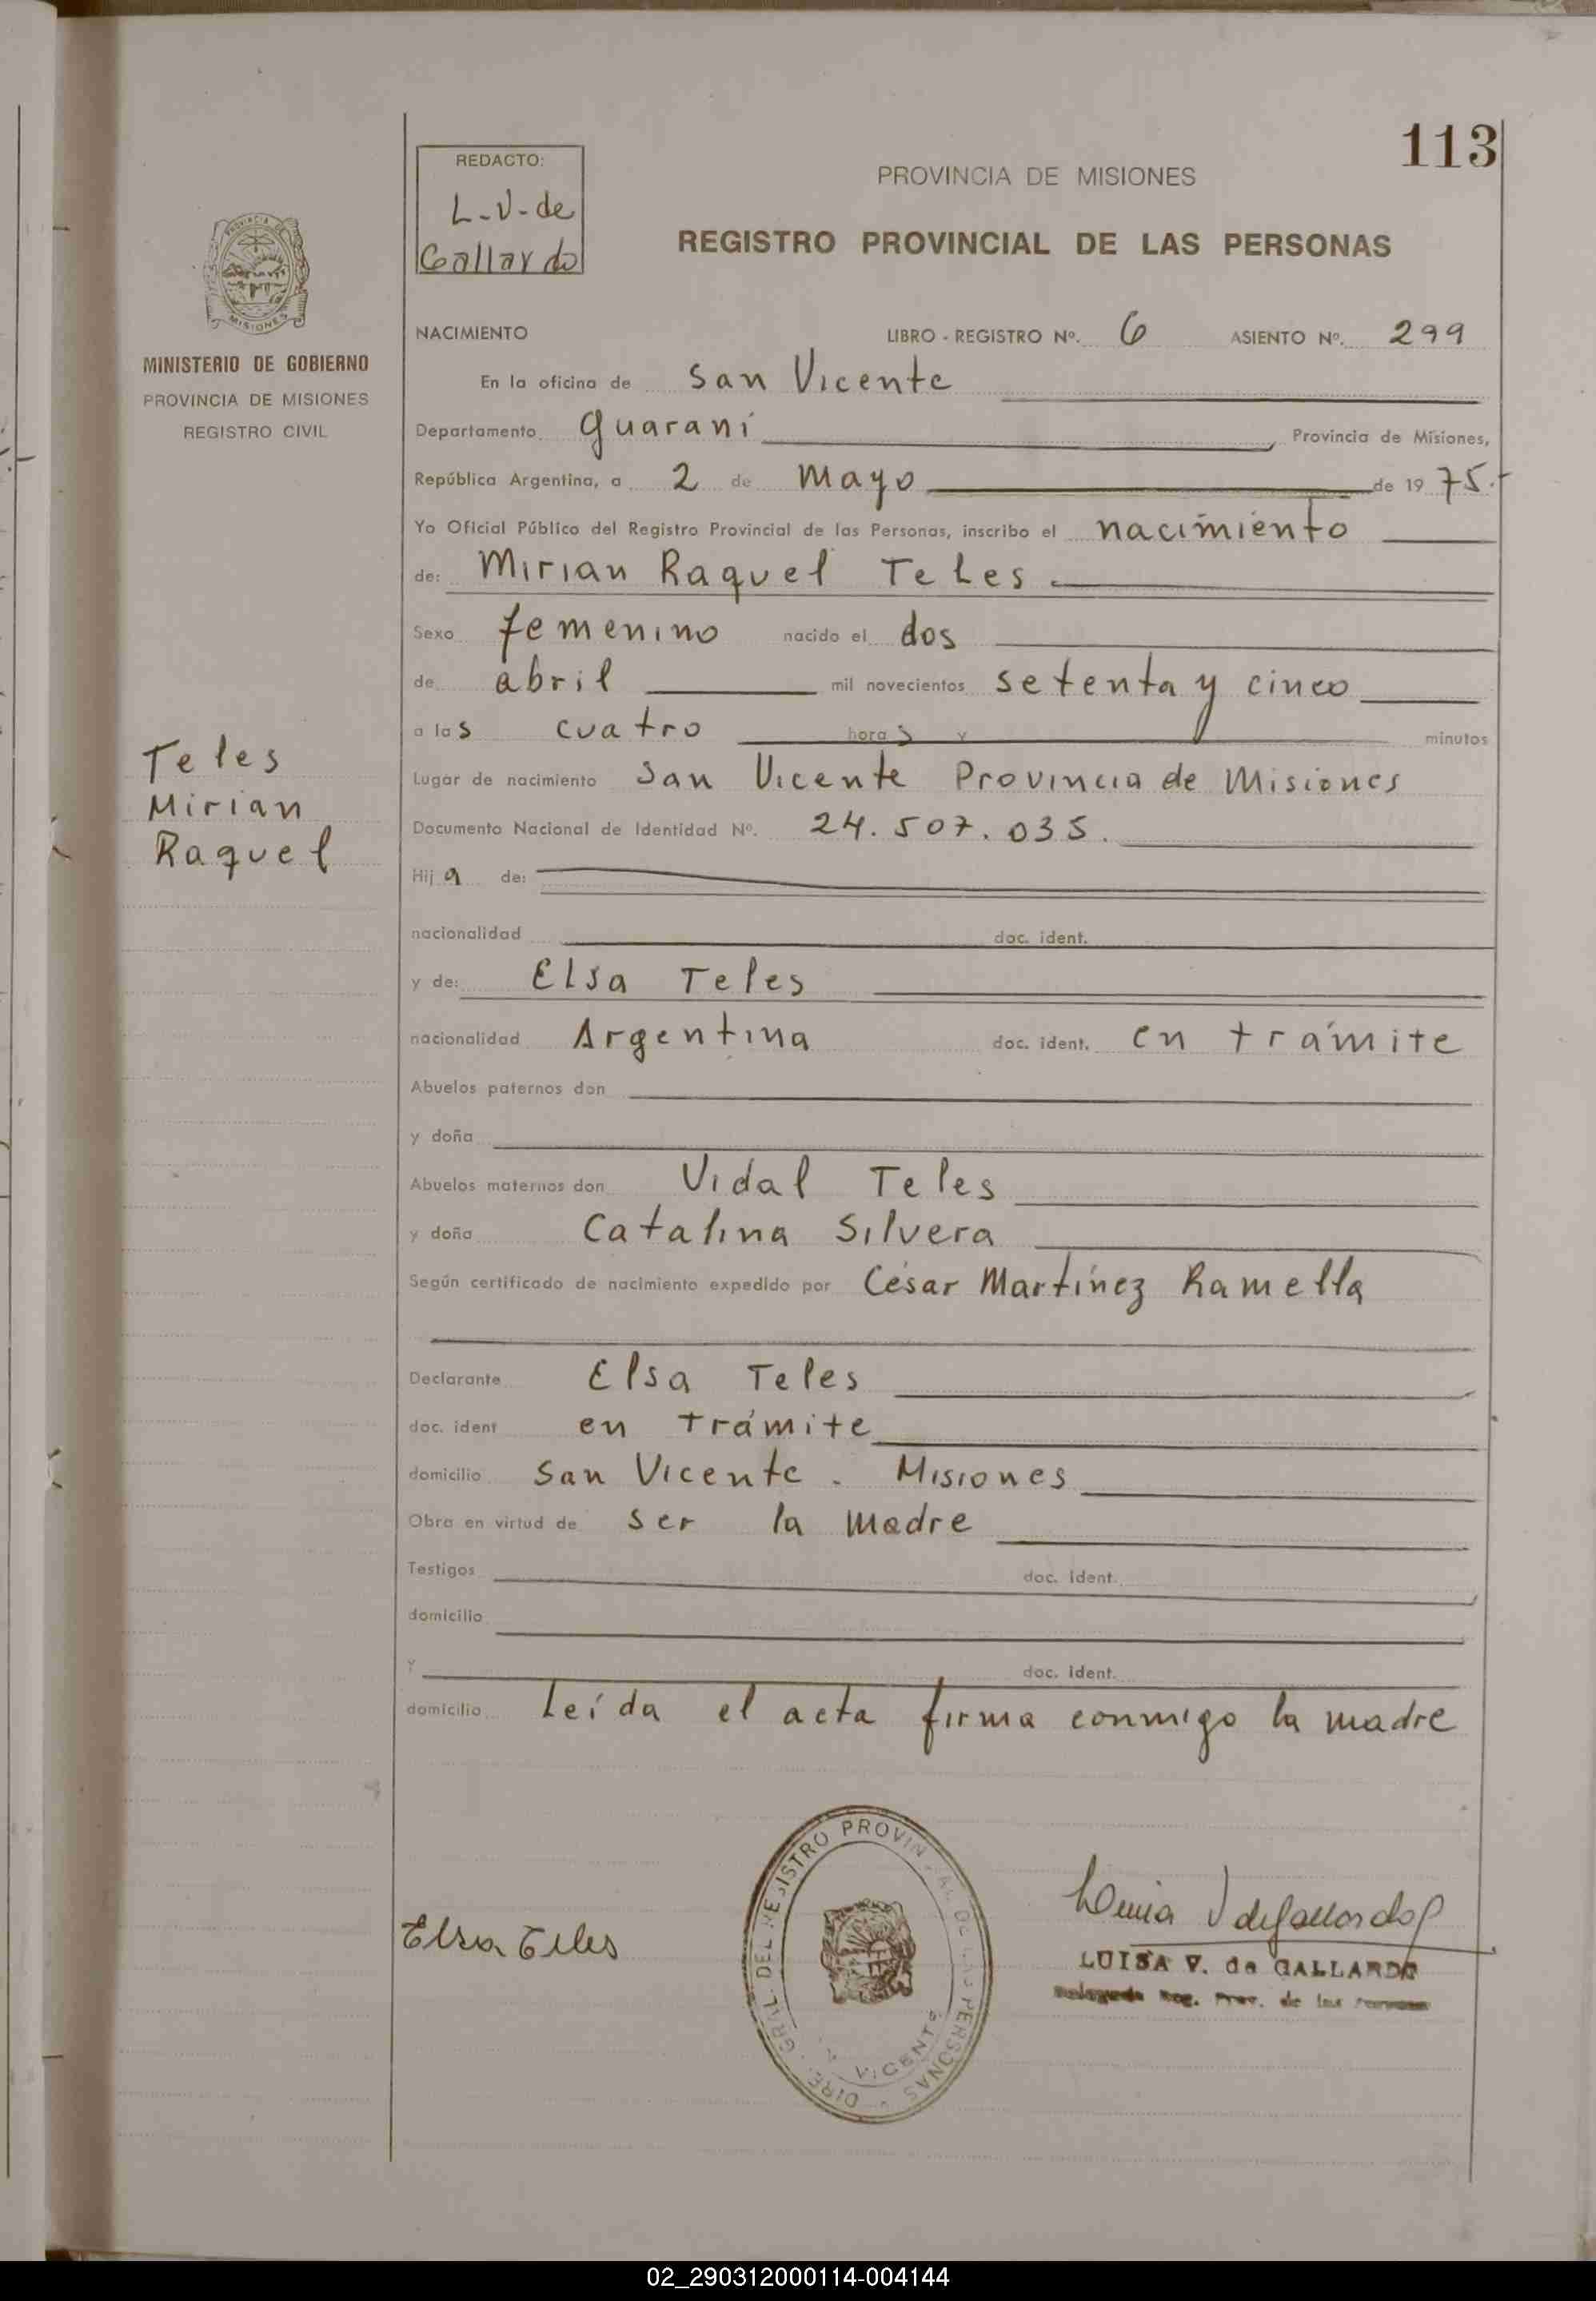 113
REDACTO:
L-V-de
Gallardo
PROVINCIA DE MISIONES
REGISTRO PROVINCIAL DE LAS PERSONAS
MISIONES
MINISTERIO DE GOBIERNO
PROVINCIA DE MISIONES
REGISTRO CIVIL
NACIMIENTO LIBRO - REGISTRO Nº. 6 ASIENTO Nº. 299
En la oficina de San Vicente
Departamento Guaraní, Provincia de Misiones,
República Argentina, a 2 de Mayo de 1975.-
Yo Oficial Público del Registro Provincial de las Personas, inscribo el nacimiento
de: Mirian Raquel Teles
Sexo femenino nacido el dos
de abril mil novecientos setenta y cinco
a las cuatro horas y minutos
Teles
Mirian
Raquel
Lugar de nacimiento San Vicente Provincia de Misiones
Documento Nacional de Identidad Nº. 24.507.035.
Hija de:
nacionalidad doc. ident.
y de: Elsa Teles
nacionalidad Argentina doc. ident. en trámite
Abuelos paternos don
y doña
Abuelos maternos don Vidal Teles
y doña Catalina Silvera
Según certificado de nacimiento expedido por César Martínez Ramella
Declarante Elsa Teles
doc. ident en trámite
domicilio San Vicente . Misiones
Obra en virtud de ser la madre
Testigos doc. ident.
domicilio
Y doc. ident.
domicilio Leída el acta firma conmigo la madre
Elsa Teles
DIRE. GRAL. DEL REGISTRO PROVIN DE LAS PERSONAS
VICENTE
Luisa V de Gallardo
LUISA V. de GALLARDO
Delegada Reg. Prov. de las Personas
02_290312000114-004144